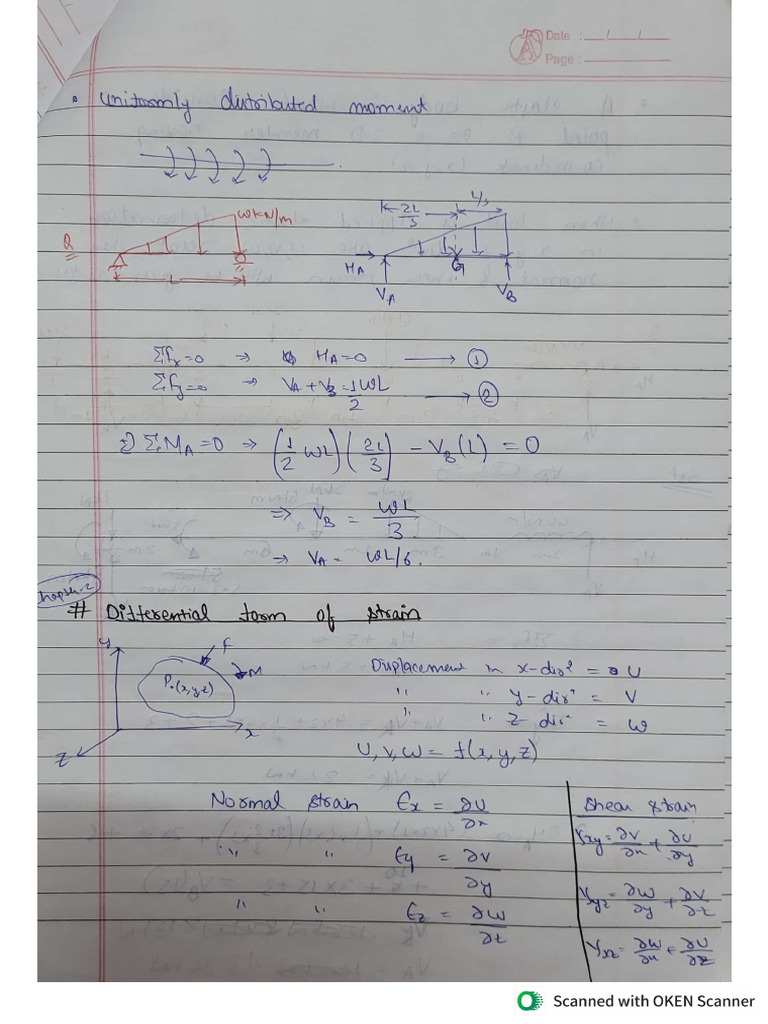 Date : / /
Page :
• Uniformly distributed moment
Q
w kN/m
L
2L/3
L/3
HA
G
VA
VB
Σfx=0 ⇒ HA=0 → ①
Σfy=0 ⇒ VA+VB=1/2 WL → ②
ΣMA=0 ⇒ (1/2 WL)(2L/3) - VB(L) = 0
⇒ VB = WL/3
⇒ VA = WL/6.
Chapter-2
# Differential form of strain
y
F
M
P.(x,y,z)
x
z
Displacement in x-dirⁿ = U
" " y-dirⁿ = V
" " z-dirⁿ = W
U, V, W = f(x, y, z)
Normal strain Ɛx = ∂U/∂x
" " Ɛy = ∂V/∂y
" " Ɛz = ∂W/∂z
Shear strain
γxy = ∂V/∂x + ∂U/∂y
γyz = ∂W/∂y + ∂V/∂z
γxz = ∂W/∂x + ∂U/∂z
Scanned with OKEN Scanner